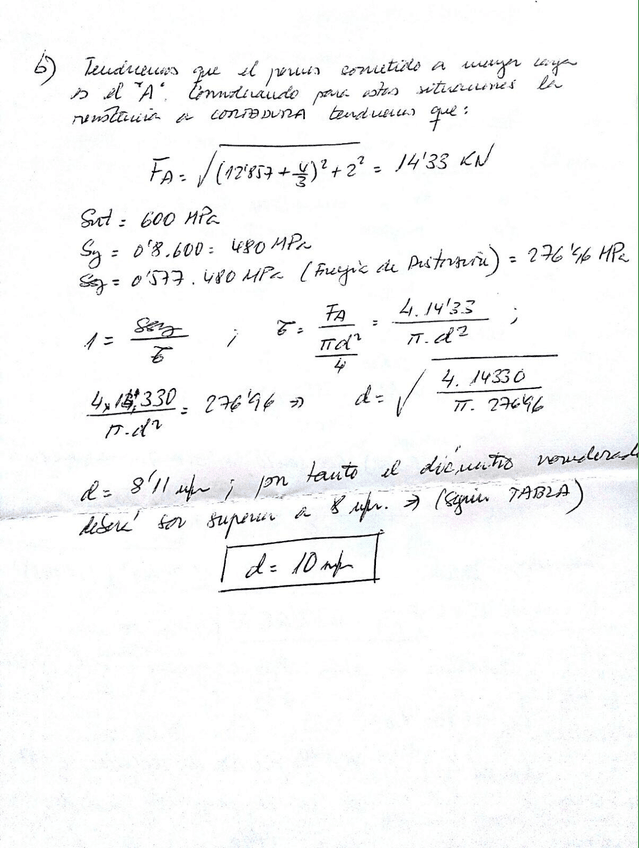 b) Tendremos que el perno sometido a mayor carga
es el "A". Considerando para estas situaciones la
resistencia a CORTADURA tendremos que:
FA = √((12'857 + 4/3)² + 2²) = 14'33 KN
Sut = 600 MPa
Sy = 0'8.600 = 480 MPa
Ssy = 0'577 . 480 MPa (Energía de Distorsión) = 276'96 MPa
1 = Ssy/τ ; τ = FA/(πd²/4) = 4.14'33/π.d² ;
4.14.330/π.d² = 276'96 ⇒ d = √(4.14330/π.276'96)
d = 8'11 mm ; por tanto el diámetro normalizado
deberá ser superior a 8 mm. ⇒ (Según TABLA)
d = 10 mm